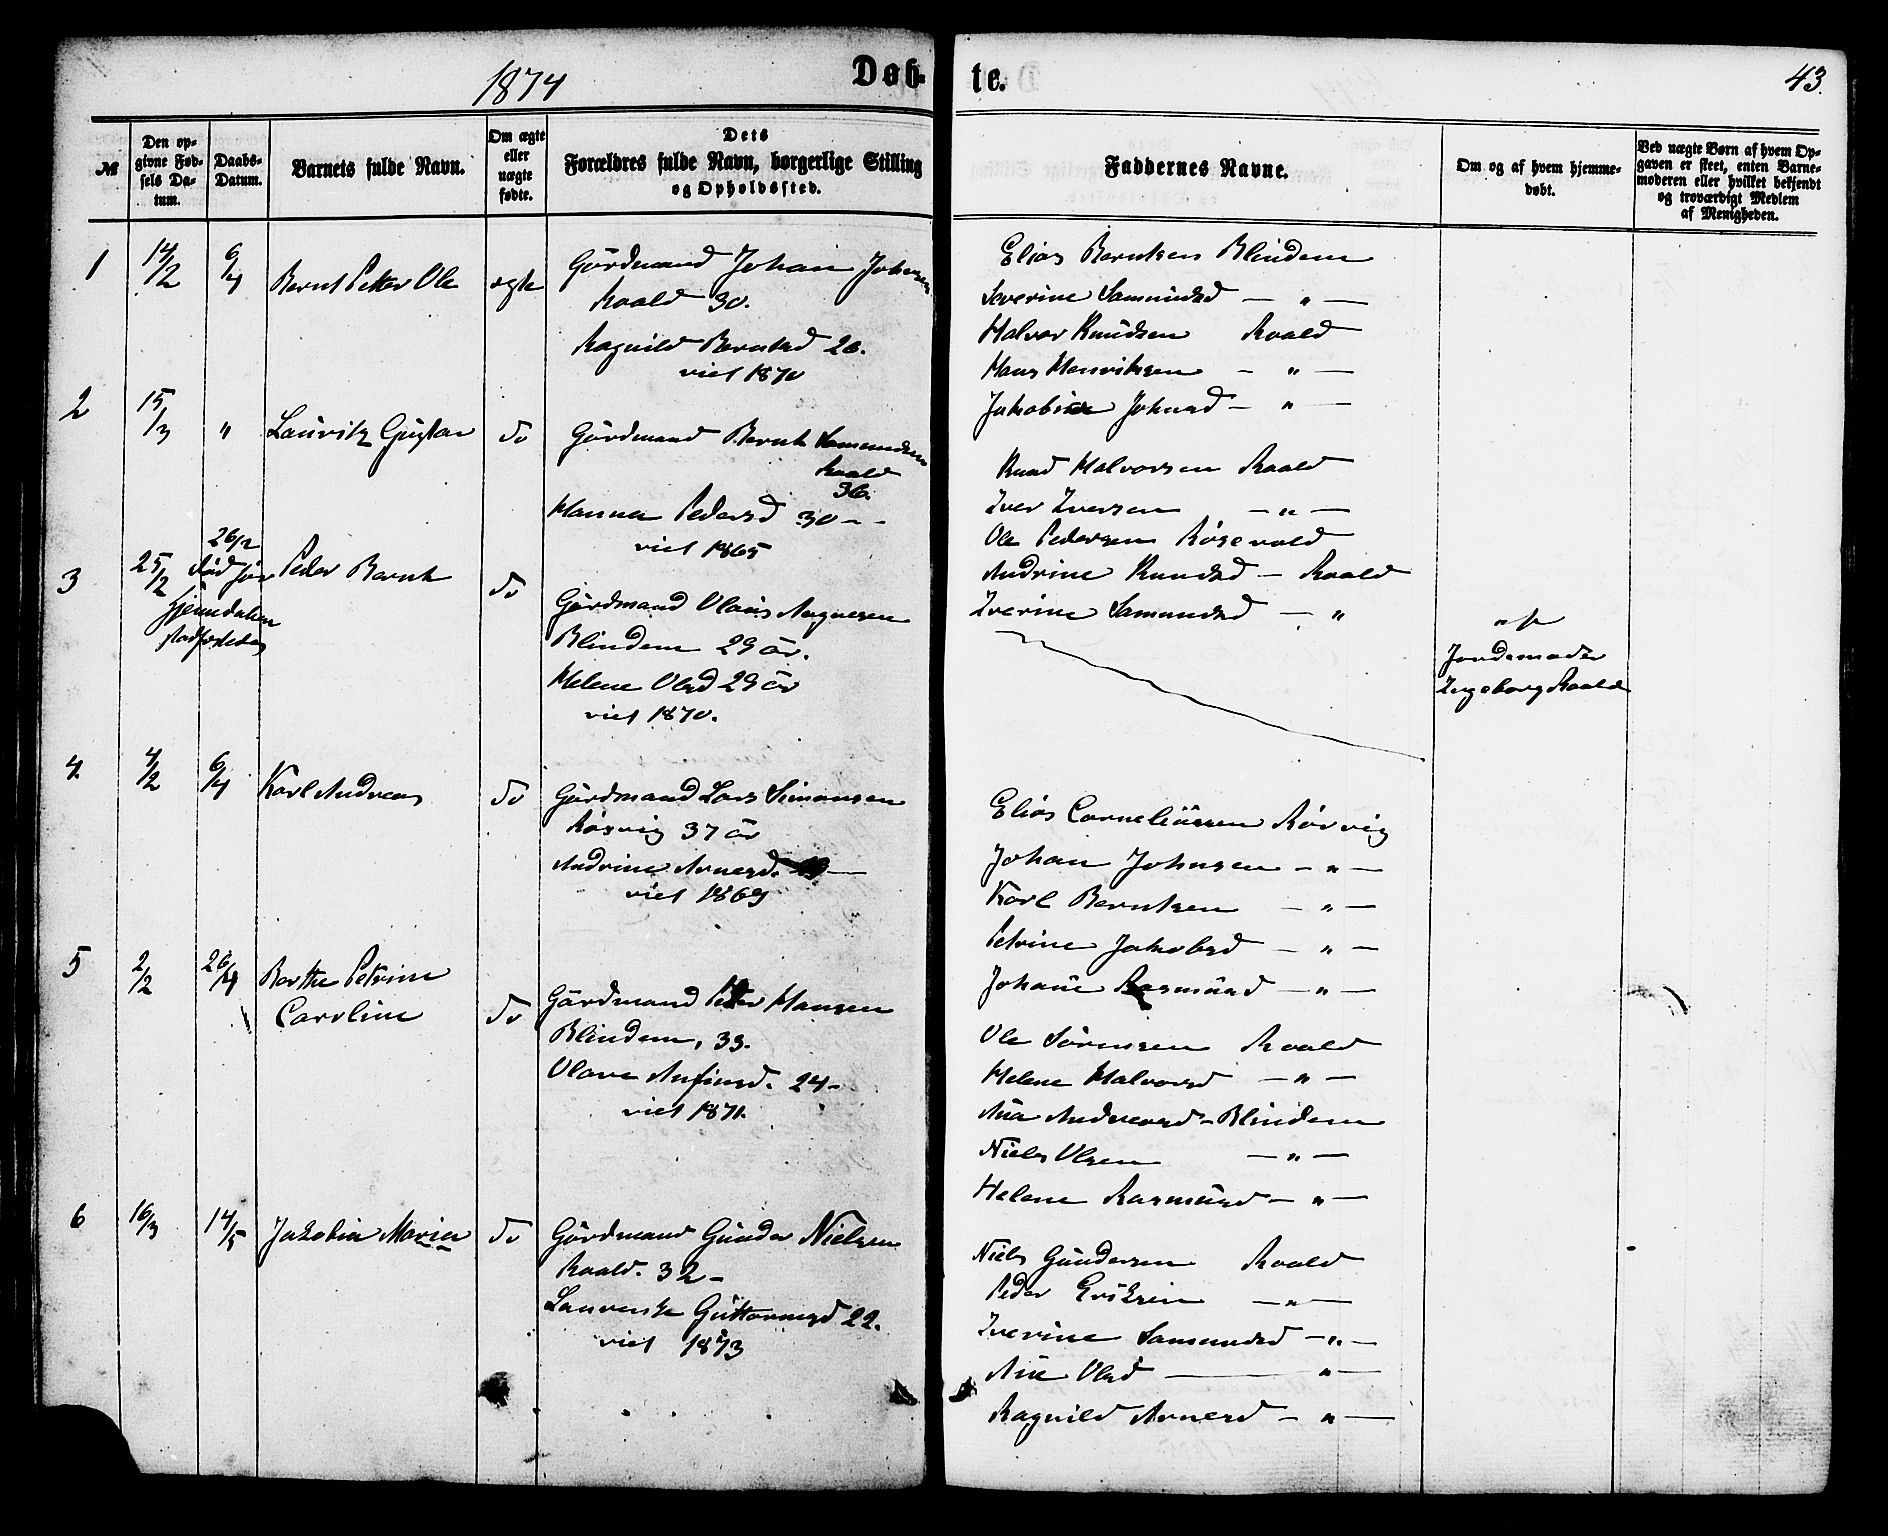 1874
Døb-
te.
43.
№
Den op-
givne Fød-
sels Da-
tum.
Daabs-
Datum.
Barnets fulde Navn.
Om ægte
eller
uægte
fødte.
Dets
Forældres fulde Navn, borgerlige Stilling
og Opholdssted.
Faddernes Navne.
Om og af hvem hjemme-
døbt.
Ved uægte Børn af hvem Op-
gaven er skeet, enten Barne-
moderen eller hvilket bekjendt
og troværdigt Medlem
af Menigheden.
1
14/2
6/4
Bernt Petter Ole
ægte
Gårdmand Johan Johnsen
Roald 30.
Ragnild Berntsd 26.
viet 1870
Elias Berntsen Blindem
Severine Samundsd — " —
Halvor Knudsen Roald
Hans Henriksen - " —
Jakobine Johnsd - " —
2
15/3
"
Lauritz Gustav
do
Gårdmand Bernt Samundsen
Roald
36.
Hanna Pedersd 30 - -
viet 1865
Knud Halvorsen Roald
Iver Iversen — " —
Ole Pedersen Røsevold
Andrine Knudsd — Roald
Iverine Samundsd — "
3
25/2
26/2
død før
hjemdaben
stadfæstedes
Peder Bernt
do
Gårdmand Olaus Aagesen
Blindem 29 år.
Helene Olsd 29 år
viet 1870.
af
Jordemoder
Ingeborg Roald
4
4/2
6/4
Karl Andreas
do
Gårdmand Lars Simonsen
Røsvig 37 år
Andrine Arnesd. —
viet 1869
Elias Corneliussen Rørvig
Johan Johnsen - " -
Karl Berntsen — " —
Petrine Jakobsd — " —
Johane Rasmusd — " —
5
2/2
26/4
Berthe Petrine
Caroline
do
Gårdmand Peder Hansen
Blindem, 33.
Olave Anfinsd. 24 -
viet 1871.
Ole Sørensen Roald
Helene Halvorsd — " —
Ana Andreasd - Blindem
Niels Olsen — " —
Helene Rasmusd — " —
6
16/3
14/5
Jakobia Maria
do
Gårdmand Gunder Nielsen
Roald. 32 -
Laurentze Guttormsd 22.
viet 1873
Niels Gundersen Roald
Peder Eriksen — " —
Iverine Samundsd — " —
Ane Olsd — " —
Ragnild Arnesd — " —